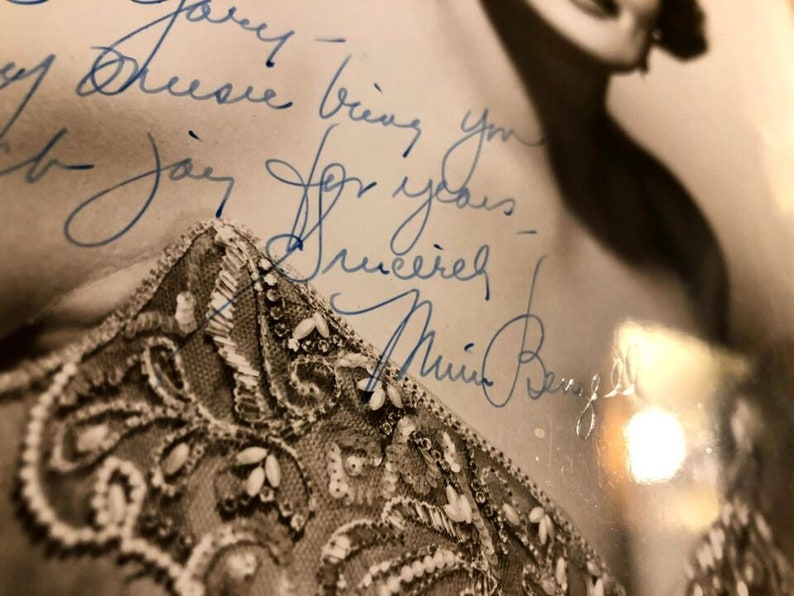 Gary -
music bring you
joy for years -
Sincerely
Mimi Benzell